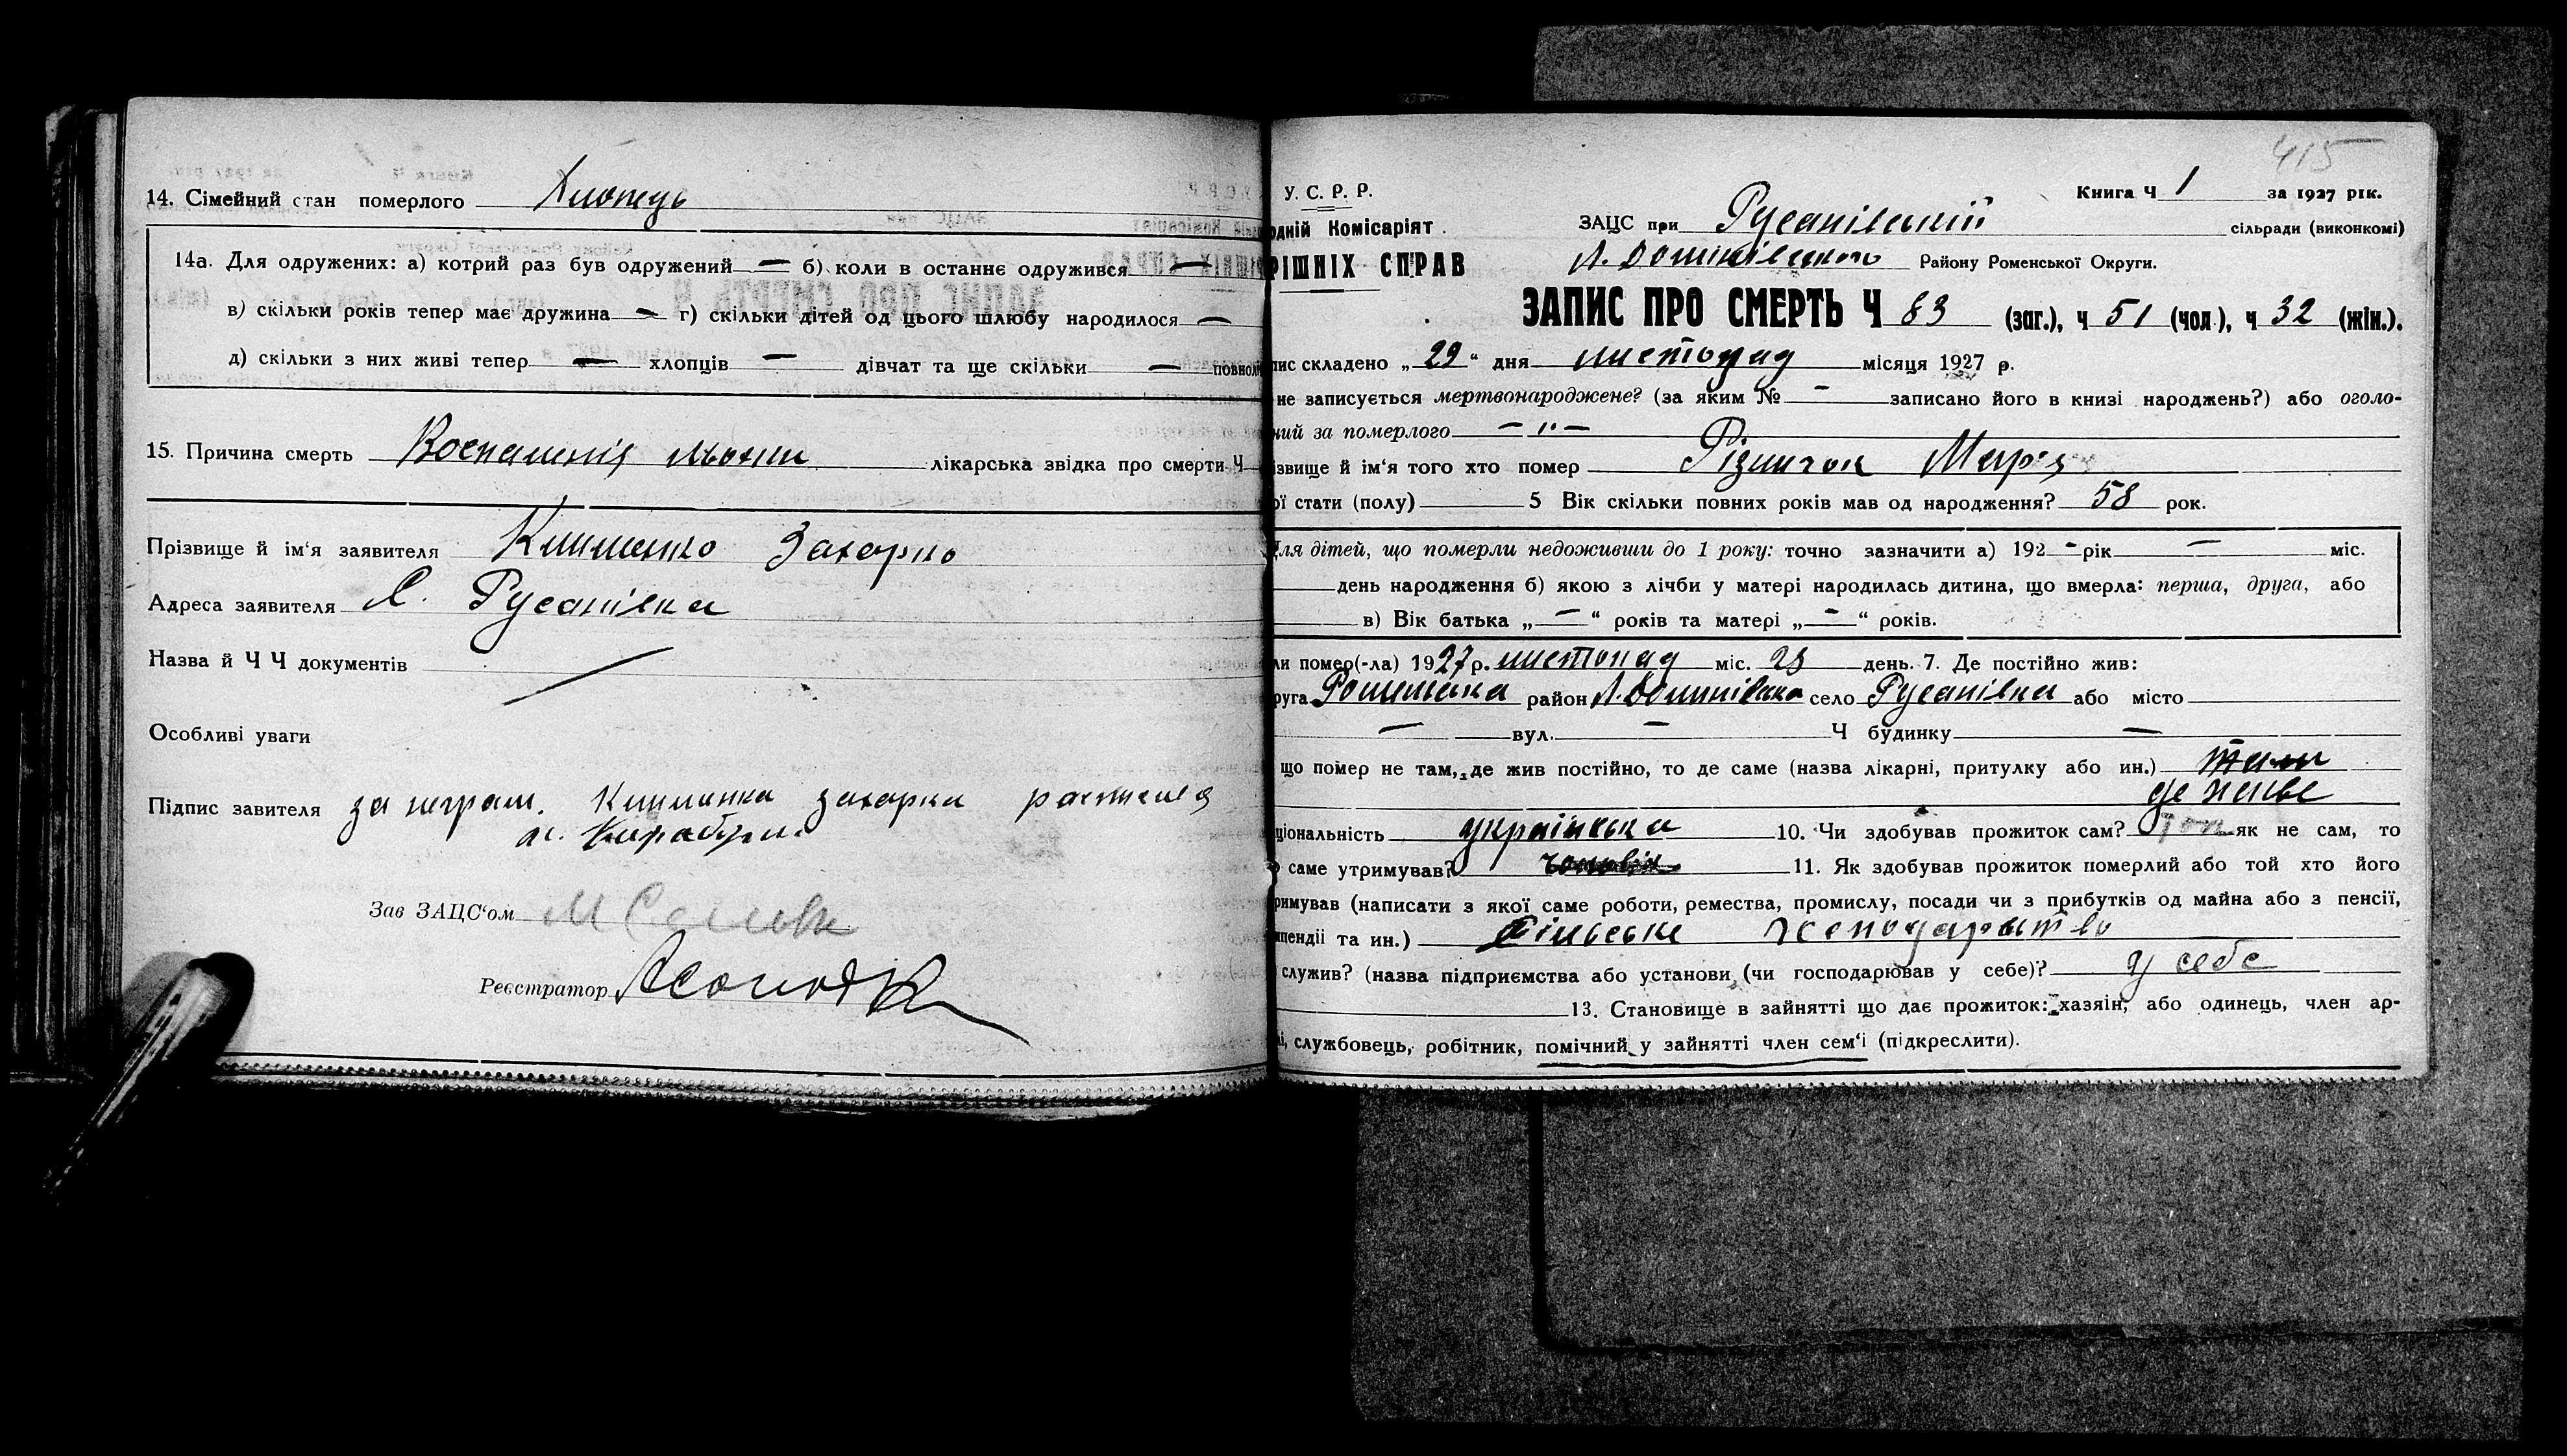 14. Сімейний стан померлого Хлопець
14а. Для одружених: а) котрий раз був одружений — б) коли в останнє одружився —
в) скільки років тепер має дружина — г) скільки дітей од цього шлюбу народилося —
д) скільки з них живі тепер — хлопців — дівчат та ще скільки — повнол
15. Причина смерть Воспаленія лікарська звідка про смерти Ч
Прізвище й ім'я заявителя Клименко Захарко
Адреса заявителя С. Русанівка
Назва й Ч Ч документів
Особливі уваги
Підпис завителя за неграм. Клименка Захарка
Зав ЗАЦС'ом
Реєстратор
415
У. С. Р. Р.
Книга Ч 1 за 1927 рік.
одній Комісаріят
ЗАЦС при Русанівській сільради (виконкомі)
РІШНІХ СПРАВ
Л. Району Роменської Округи.
ЗАПИС ПРО СМЕРТЬ Ч 83 (заг.), ч 51 (чол.), ч 32 (жін.).
пис складено „29“ дня листопад місяця 1927 р.
не записується мертвонароджене? (за яким № — записано його в книзі народжень?) або оголо-
ний за померлого — " —
ізвище й ім'я того хто помер Різничок Марія
ої стати (полу) 5 Вік скільки повних років мав од народження? 58 рок.
Для дітей, що померли недоживши до 1 року: точно зазначити а) 192 - рік — міс.
день народження б) якою з лічби у матері народилась дитина, що вмерла: перша, друга, або
в) Вік батька „—“ років та матері „—“ років.
ли помер(-ла) 1927р. листопад міс. 28 день. 7. Де постійно жив:
руга Роменська район Л. село Русанівка або місто
— вул. — Ч будинку —
що помер не там, де жив постійно, то де саме (назва лікарні, притулку або ин.) там
де живе
ціональність українська 10. Чи здобував прожиток сам? як не сам, то
о саме утримував? чоловік 11. Як здобував прожиток померлий або той хто його
римував (написати з якої саме роботи, ремества, промислу, посади чи з прибутків од майна або з пенсії,
ипендії та ин.) сільське господарство
служив? (назва підприємства або установи, (чи господарював у себе)? у себе
13. Становище в зайнятті що дає прожиток: хазяін, або одинець, член ар-
лі, службовець, робітник, помічний у зайнятті член сем'ї (підкреслити).